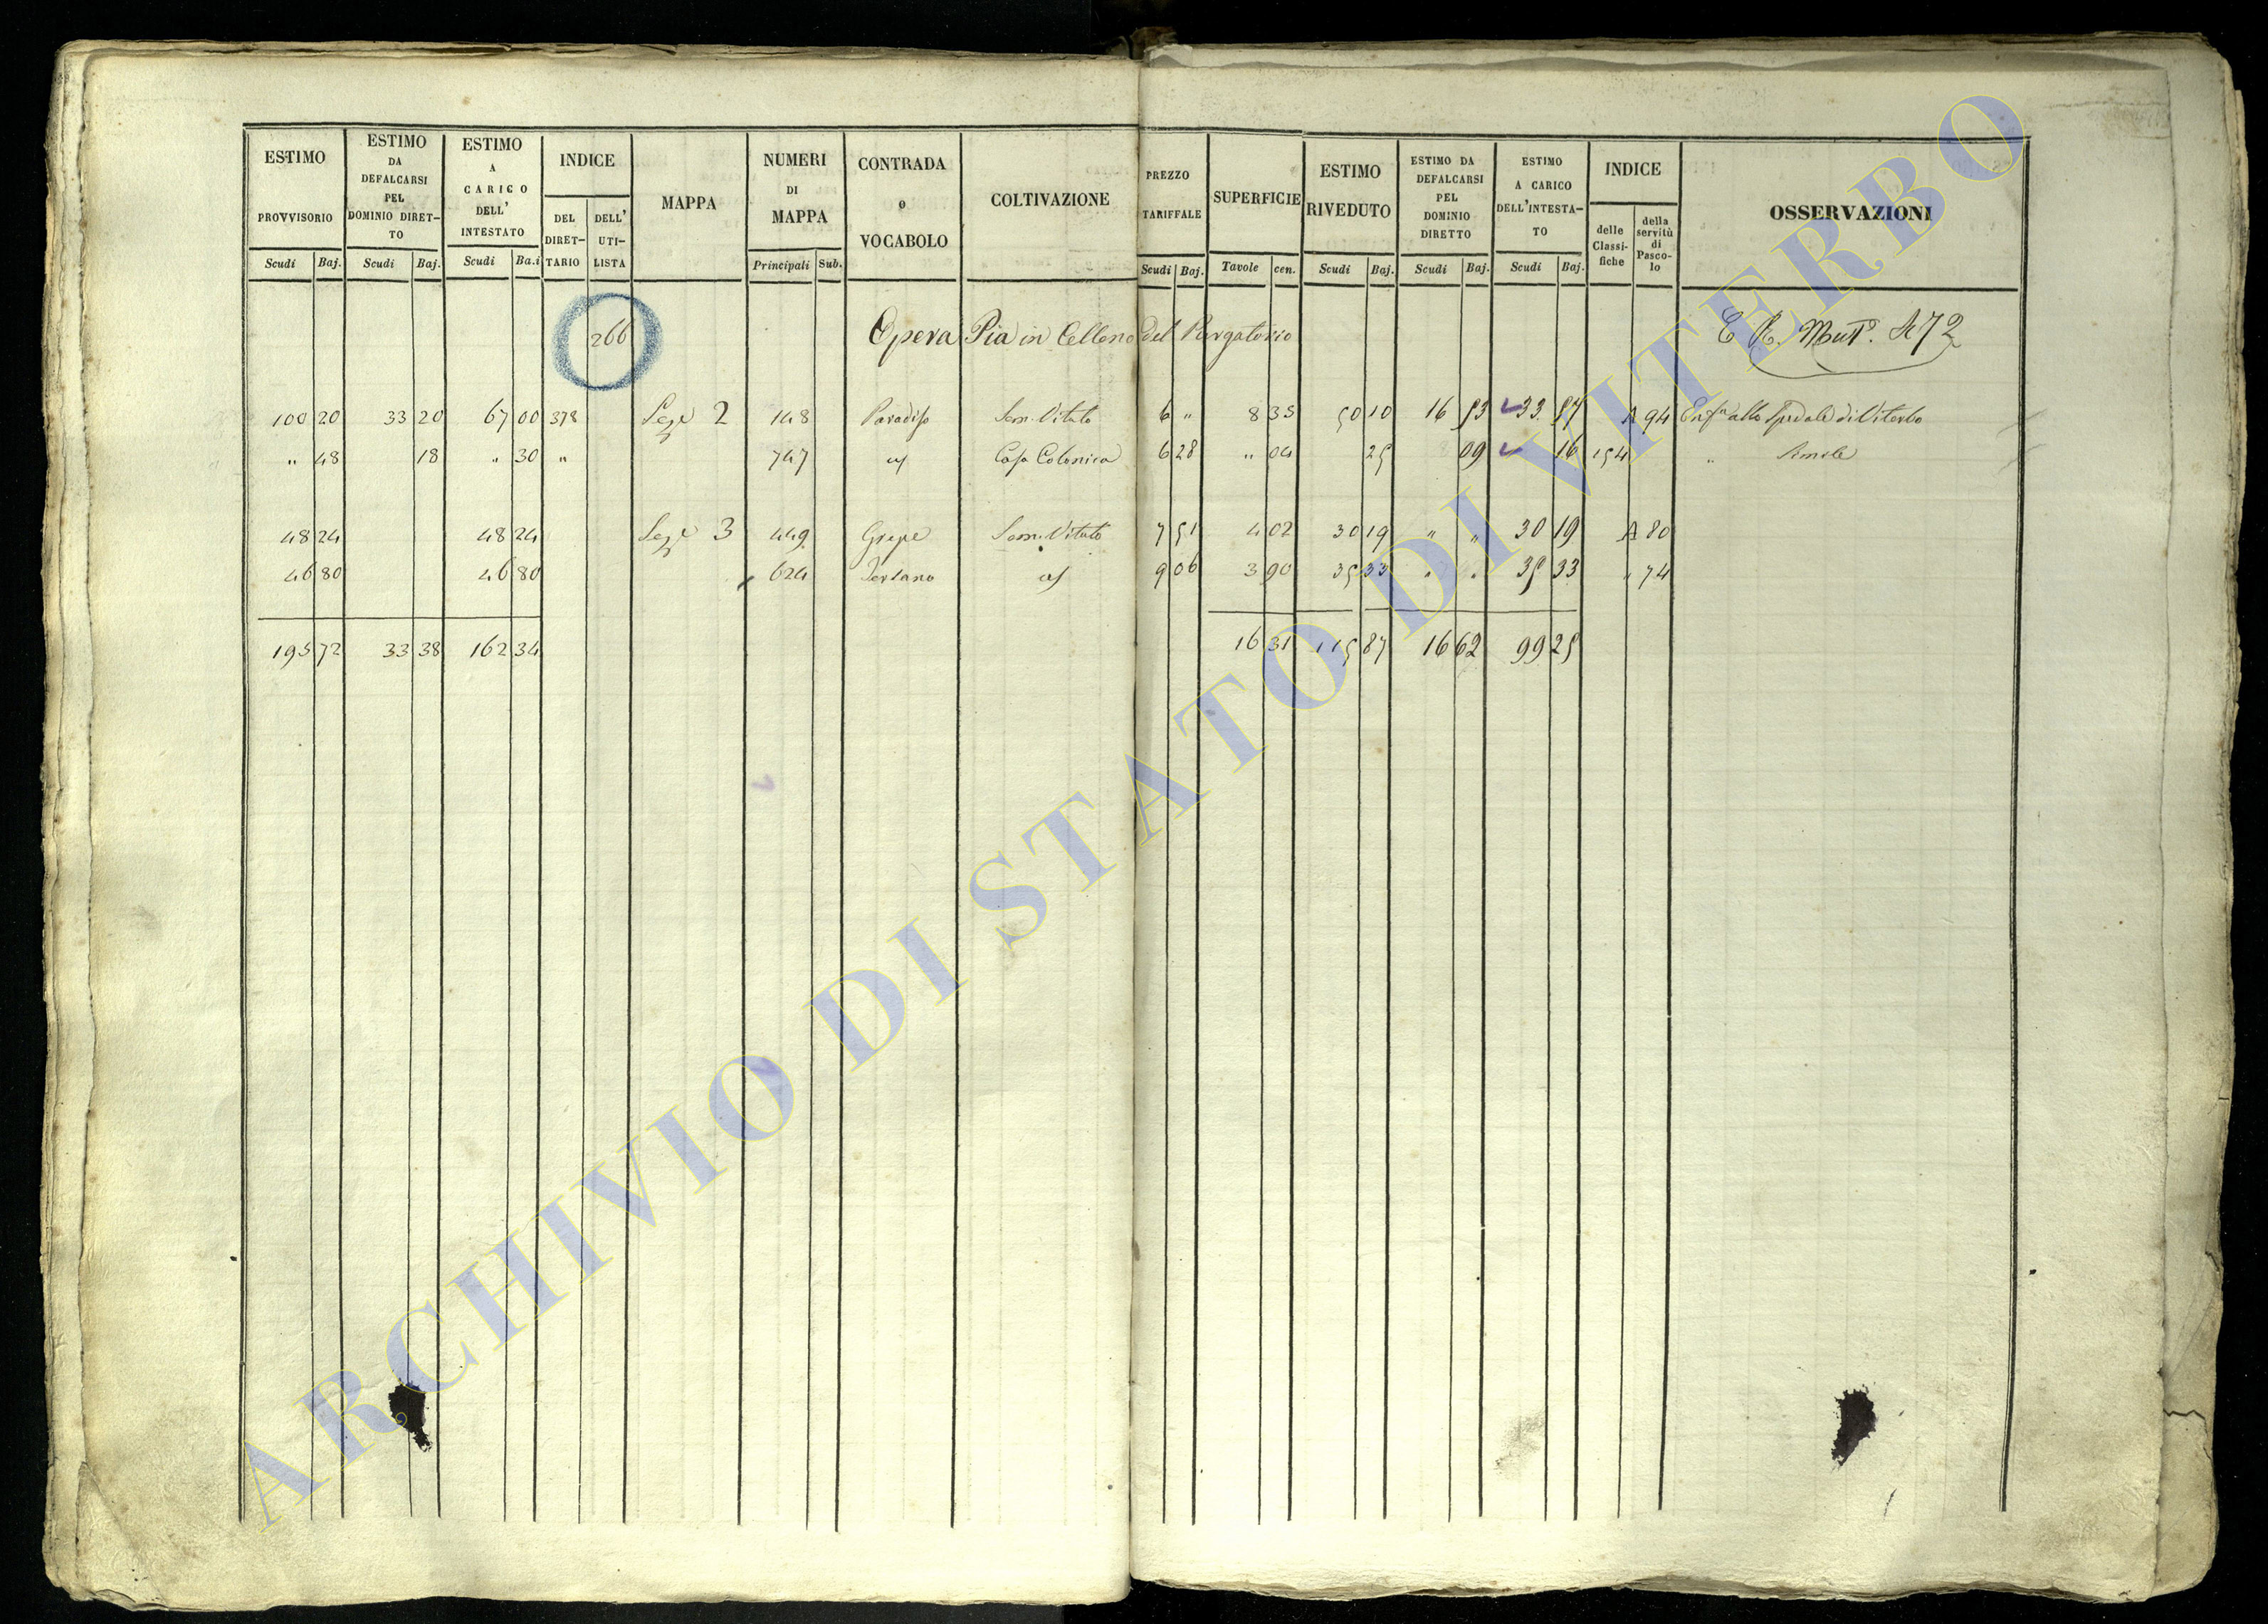 ESTIMO PROVVISORIO
ESTIMO DA DEFALCARSI PEL DOMINIO DIRET- TO
ESTIMO A CARICO DELL' INTESTATO
INDICE
DEL DIRET- TARIO
DELL' UTI- LISTA
MAPPA
NUMERI DI MAPPA
CONTRADA o VOCABOLO
COLTIVAZIONE
PREZZO TARIFFALE
SUPERFICIE
ESTIMO RIVEDUTO
ESTIMO DA DEFALCARSI PEL DOMINIO DIRETTO
ESTIMO A CARICO DELL'INTESTA- TO
INDICE
delle Classi- fiche
della servitù di Pasco- lo
OSSERVAZIONI
Scudi Baj. Scudi Baj. Scudi Ba.i Principali Sub. Scudi Baj. Tavole cen. Scudi Baj. Scudi Baj. Scudi Baj.
266 Opera Pia in Celleno del Purgatorio E R. Mut. 472
100 20 33 20 67 00 378 Sez.e 2 148 Paradiso Sem. Vitato 6 " 8 35 50 10 16 53 33 57 A 94 Enf.a allo Spedale di Viterbo
" 48 18 " 30 " 747 Casa Colonica 6 28 " 04 25 09 16 154 " Simile
48 24 48 24 Sez.e 3 449 Grepe Sem. Vitato 7 51 4 02 30 19 " " 30 19 A 80
46 80 46 80 624 9 06 3 90 35 33 " " 35 33 " 74
195 72 33 38 162 34 16 31 115 87 16 62 99 25
ARCHIVIO DI STATO DI VITERBO